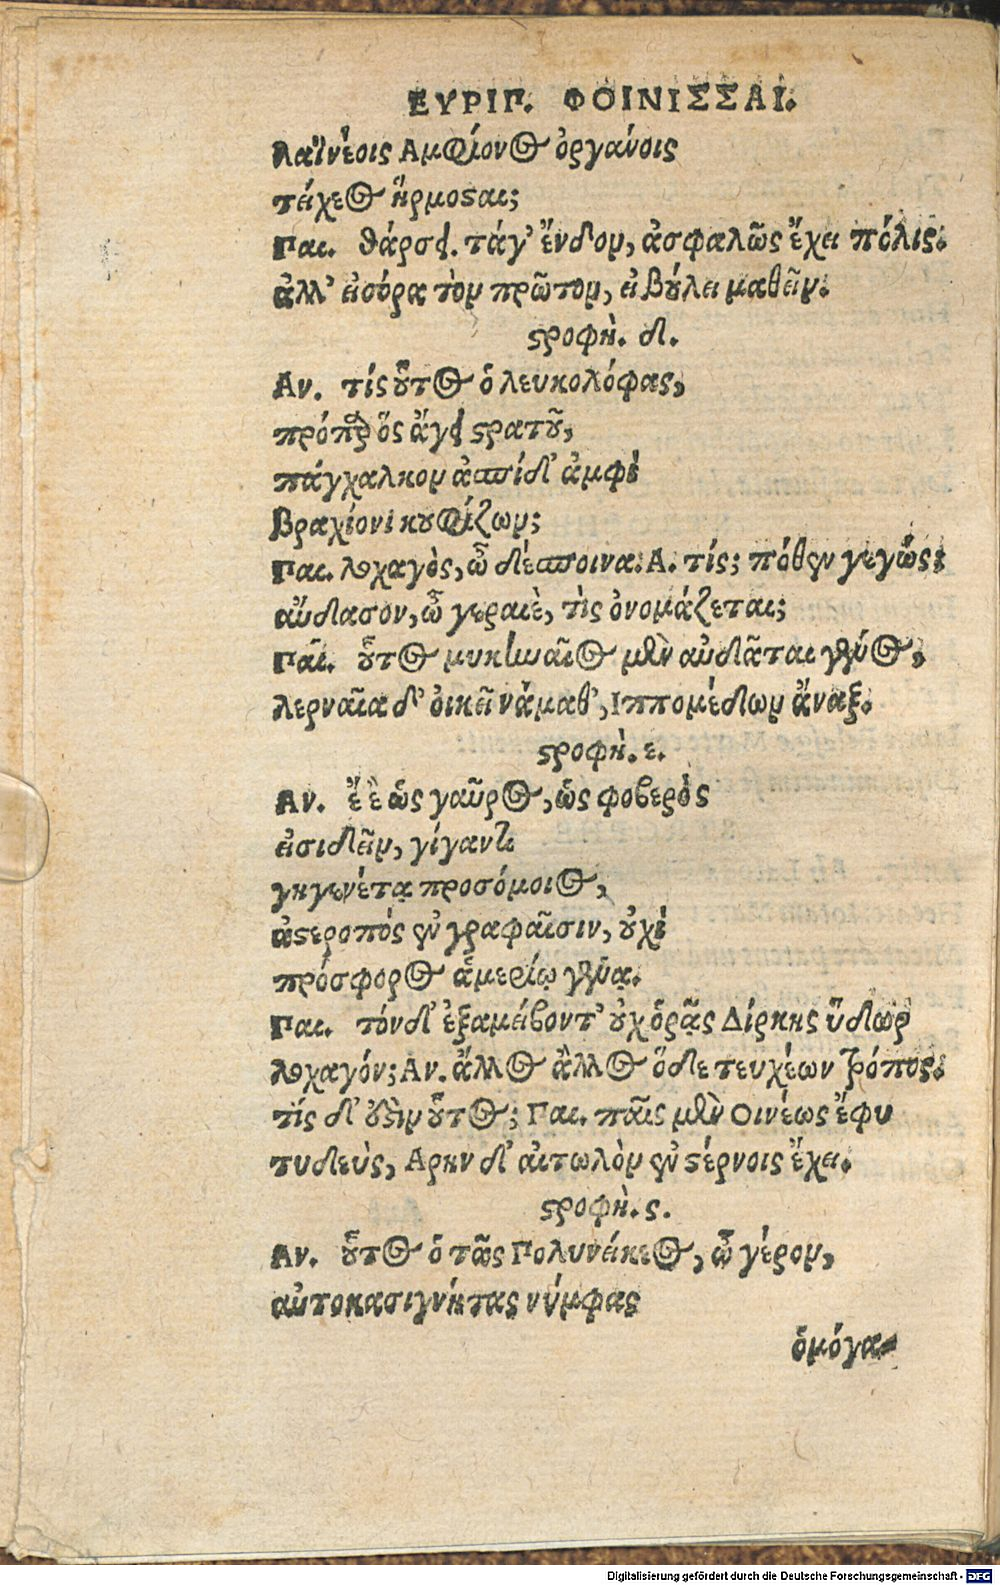 ΕΥΡΙΠ. ΦΟΙΝΙΣΣΑΙ.
λαϊνέοις Αμφίονος ὀργάνοις
τείχεος ἥρμοσαι;
Παι. θάρσει. τάγ' ἔνδον, ἀσφαλῶς ἔχει πόλις.
ἀλλ' εἰσόρα τὸν πρῶτον, εἰ βούλει μαθεῖν.
στροφὴ. δ.
Αν. τίς οὗτος ὁ λευκολόφας,
πρόπαρ ὅς ἄγει στρατοῦ,
πάγχαλκον ἀσπίδ' ἀμφὶ
βραχίονι κουφίζων;
Παι. λοχαγὸς, ὦ δέσποινα. Α. τίς; πόθεν γεγώς;
αὔδασον, ὦ γεραιὲ, τὶς ὀνομάζεται;
Παι. οὗτος μυκηναῖος μὲν αὐδᾶται γένος,
λερναῖα δ' οἰκεῖ νάμαθ', Ιππομέδων ἄναξ.
στροφὴ. ε.
Αν. ἔ ἒ ὡς γαῦρος, ὡς φοβερὸς
εἰσιδεῖν, γίγαντι
γηγενέτᾳ προσόμοιος,
ἀστεροπός ἐν γραφαῖσιν, οὐχὶ
πρόσφορος ἁμερίῳ γέννᾳ.
Παι. τόνδ' ἐξαμείβοντ' οὐχ ὁρᾷς Δίρκης ὕδωρ
λοχαγόν; Αν. ἄλλος ἄλλος ὅδε τευχέων τρόπος.
τίς δ' οὐστὶν οὗτος; Παι. παῖς μὲν Οινέως ἔφυ
τυδεὺς, Αρην δ' αἰτωλὸν ἐν στέρνοις ἔχει.
στροφὴ. ϛ.
Αν. οὗτος ὁ τᾶς Πολυνείκεος, ὦ γέρον,
αὐτοκασιγνήτας νύμφας
ὁμόγα-
Digitalisierung gefördert durch die Deutsche Forschungsgemeinschaft - DFG